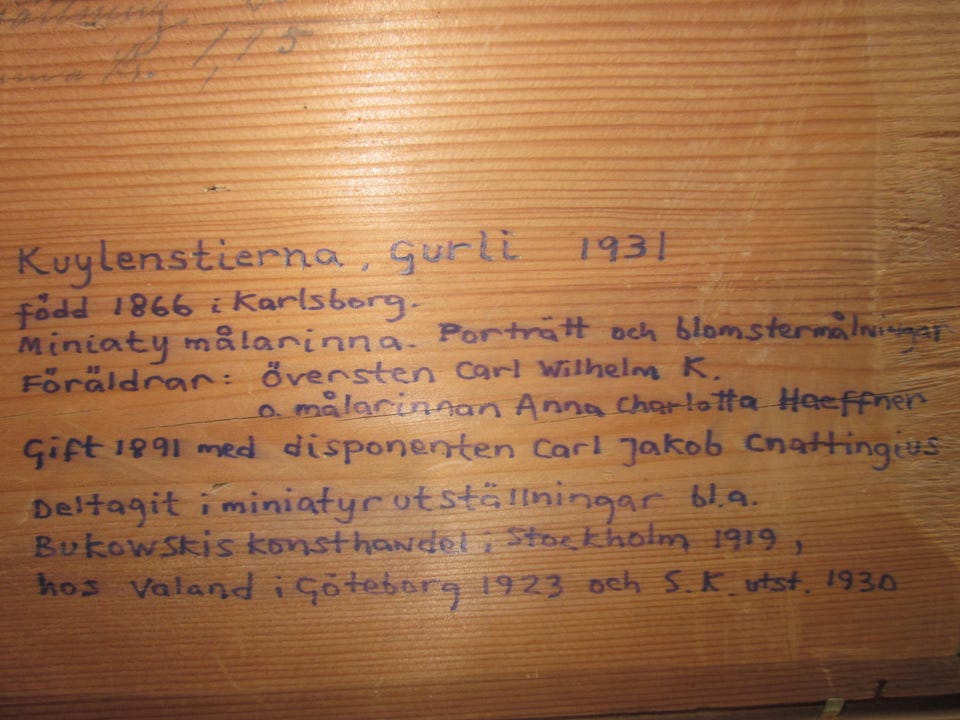 Kr. 1,15
Kuylenstierna, Gurli 1931
född 1866 i Karlsborg.
Miniaty målarinna. Porträtt och blomstermålningar
Föräldrar: Översten Carl Wilhelm K.
o. målarinnan Anna Charlotta Haeffner
Gift 1891 med disponenten Carl Jakob Cnattingius
Deltagit i miniatyrutställningar bl.a.
Bukowskis konsthandel i Stockholm 1919,
hos Valand i Göteborg 1923 och S.K. utst. 1930